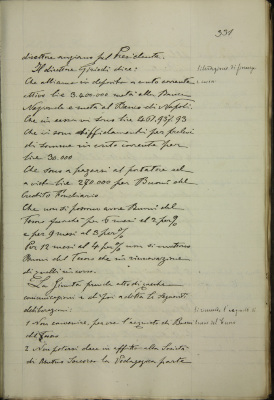 331
direttore
pel Presidente.
Il direttore dice:
Che abbiamo in deposito a conto corrente
attivo lire 3.400.000 metà alla Banca
Nazionale e metà al Banco di Napoli.
Che in cassa vi sono lire 461.937.93
Che vi sono affidamenti per prelievi
di somme in conto corrente per
lire 30.000
Che sono a pagarsi al portatore ed
a vista lire 280.000 per Buoni del
Credito Fondiario
Che non si possono avere Buoni del
Tesoro perché per 6 mesi al 2 per %
e per 9 mesi al 3 per %
Per 12 mesi al 4 per % non si emettono
Buoni del Tesoro che in rinnovazione
di quelli in corso.
La Giunta prende atto di queste
comunicazioni e di poi adotta le seguenti
deliberazioni:
1 Non convenire, per ora l'acquisto di Buoni
del Tesoro
2 Non potersi dare in affitto alla Società
di Mutuo Soccorso la Pedagogica parte